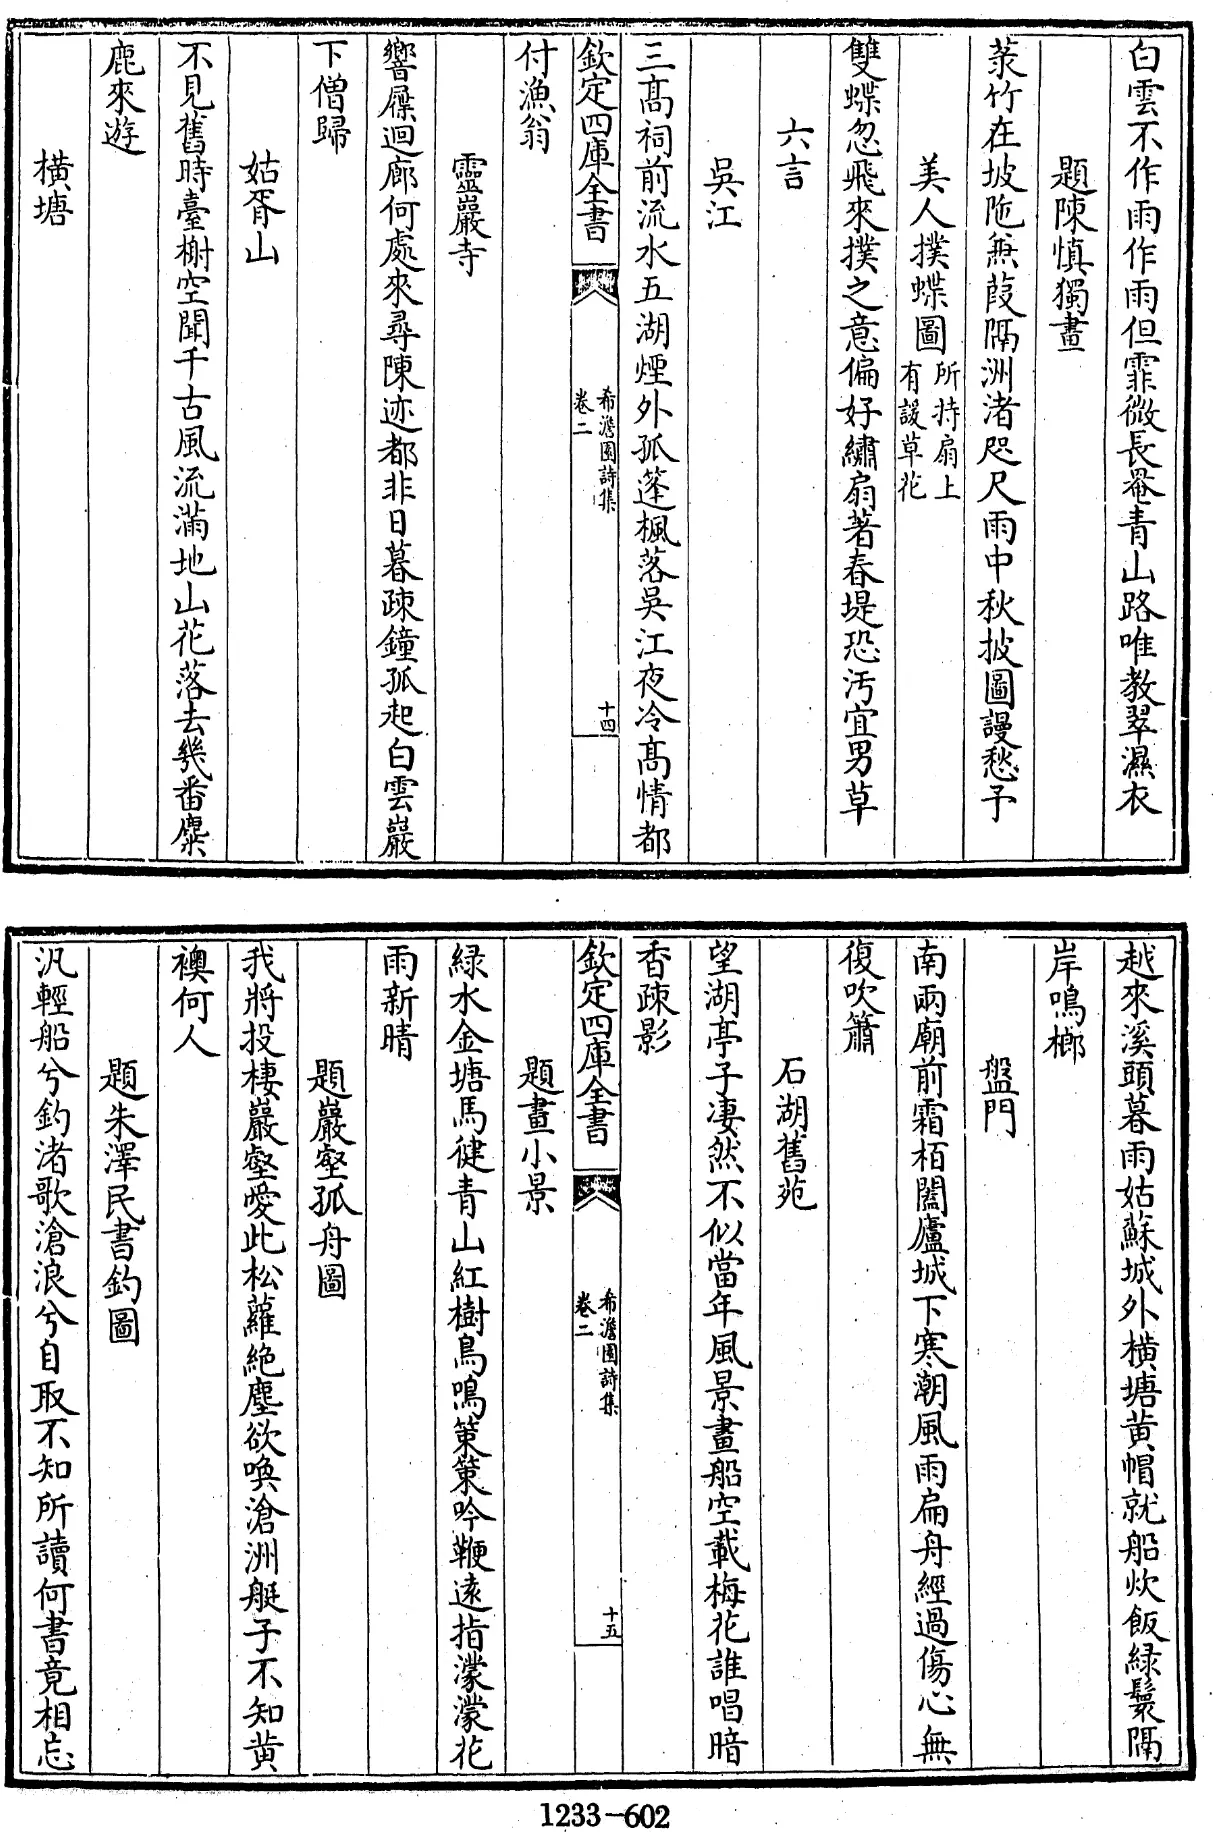 白雲不作雨作雨但霏微長菴青山路唯教翠濕衣
題陳慎獨畫
菉竹在坡陁蒹葭隔洲渚咫尺雨中秋披圖謾愁予
美人撲蝶圖所持扇上有諼草花
雙蝶忽飛來撲之意偏好繡扇著春堤恐汚宜男草
六言
吳江
三髙祠前流水五湖煙外孤蓬楓落吳江夜冷髙情都
欽定四庫全書
希澹園詩集
卷二
十四
付漁翁
靈巖寺
響屧迴廊何處來尋陳迹都非日暮疎鐘孤起白雲巖
下僧歸
姑胥山
不見舊時臺榭空聞千古風流滿地山花落去幾番麋
鹿來遊
橫塘
越來溪頭暮雨姑蘇城外橫塘黄帽就船炊飯緑鬟隔
岸鳴榔
盤門
南兩廟前霜栢闔廬城下寒潮風雨扁舟經過傷心無
復吹簫
石湖舊苑
望湖亭子凄然不似當年風景畫船空載梅花誰唱暗
香疎影
欽定四庫全書
希澹園詩集
卷二
十五
題畫小景
緑水金塘馬健青山紅樹鳥鳴策策吟鞭逺指濛濛花
雨新晴
題巖壑孤舟圖
我將投棲巖壑愛此松蘿絶塵欲喚滄洲艇子不知黄
襖何人
題朱澤民書釣圖
汎輕船兮釣渚歌滄浪兮自取不知所讀何書竟相忘
1233-602